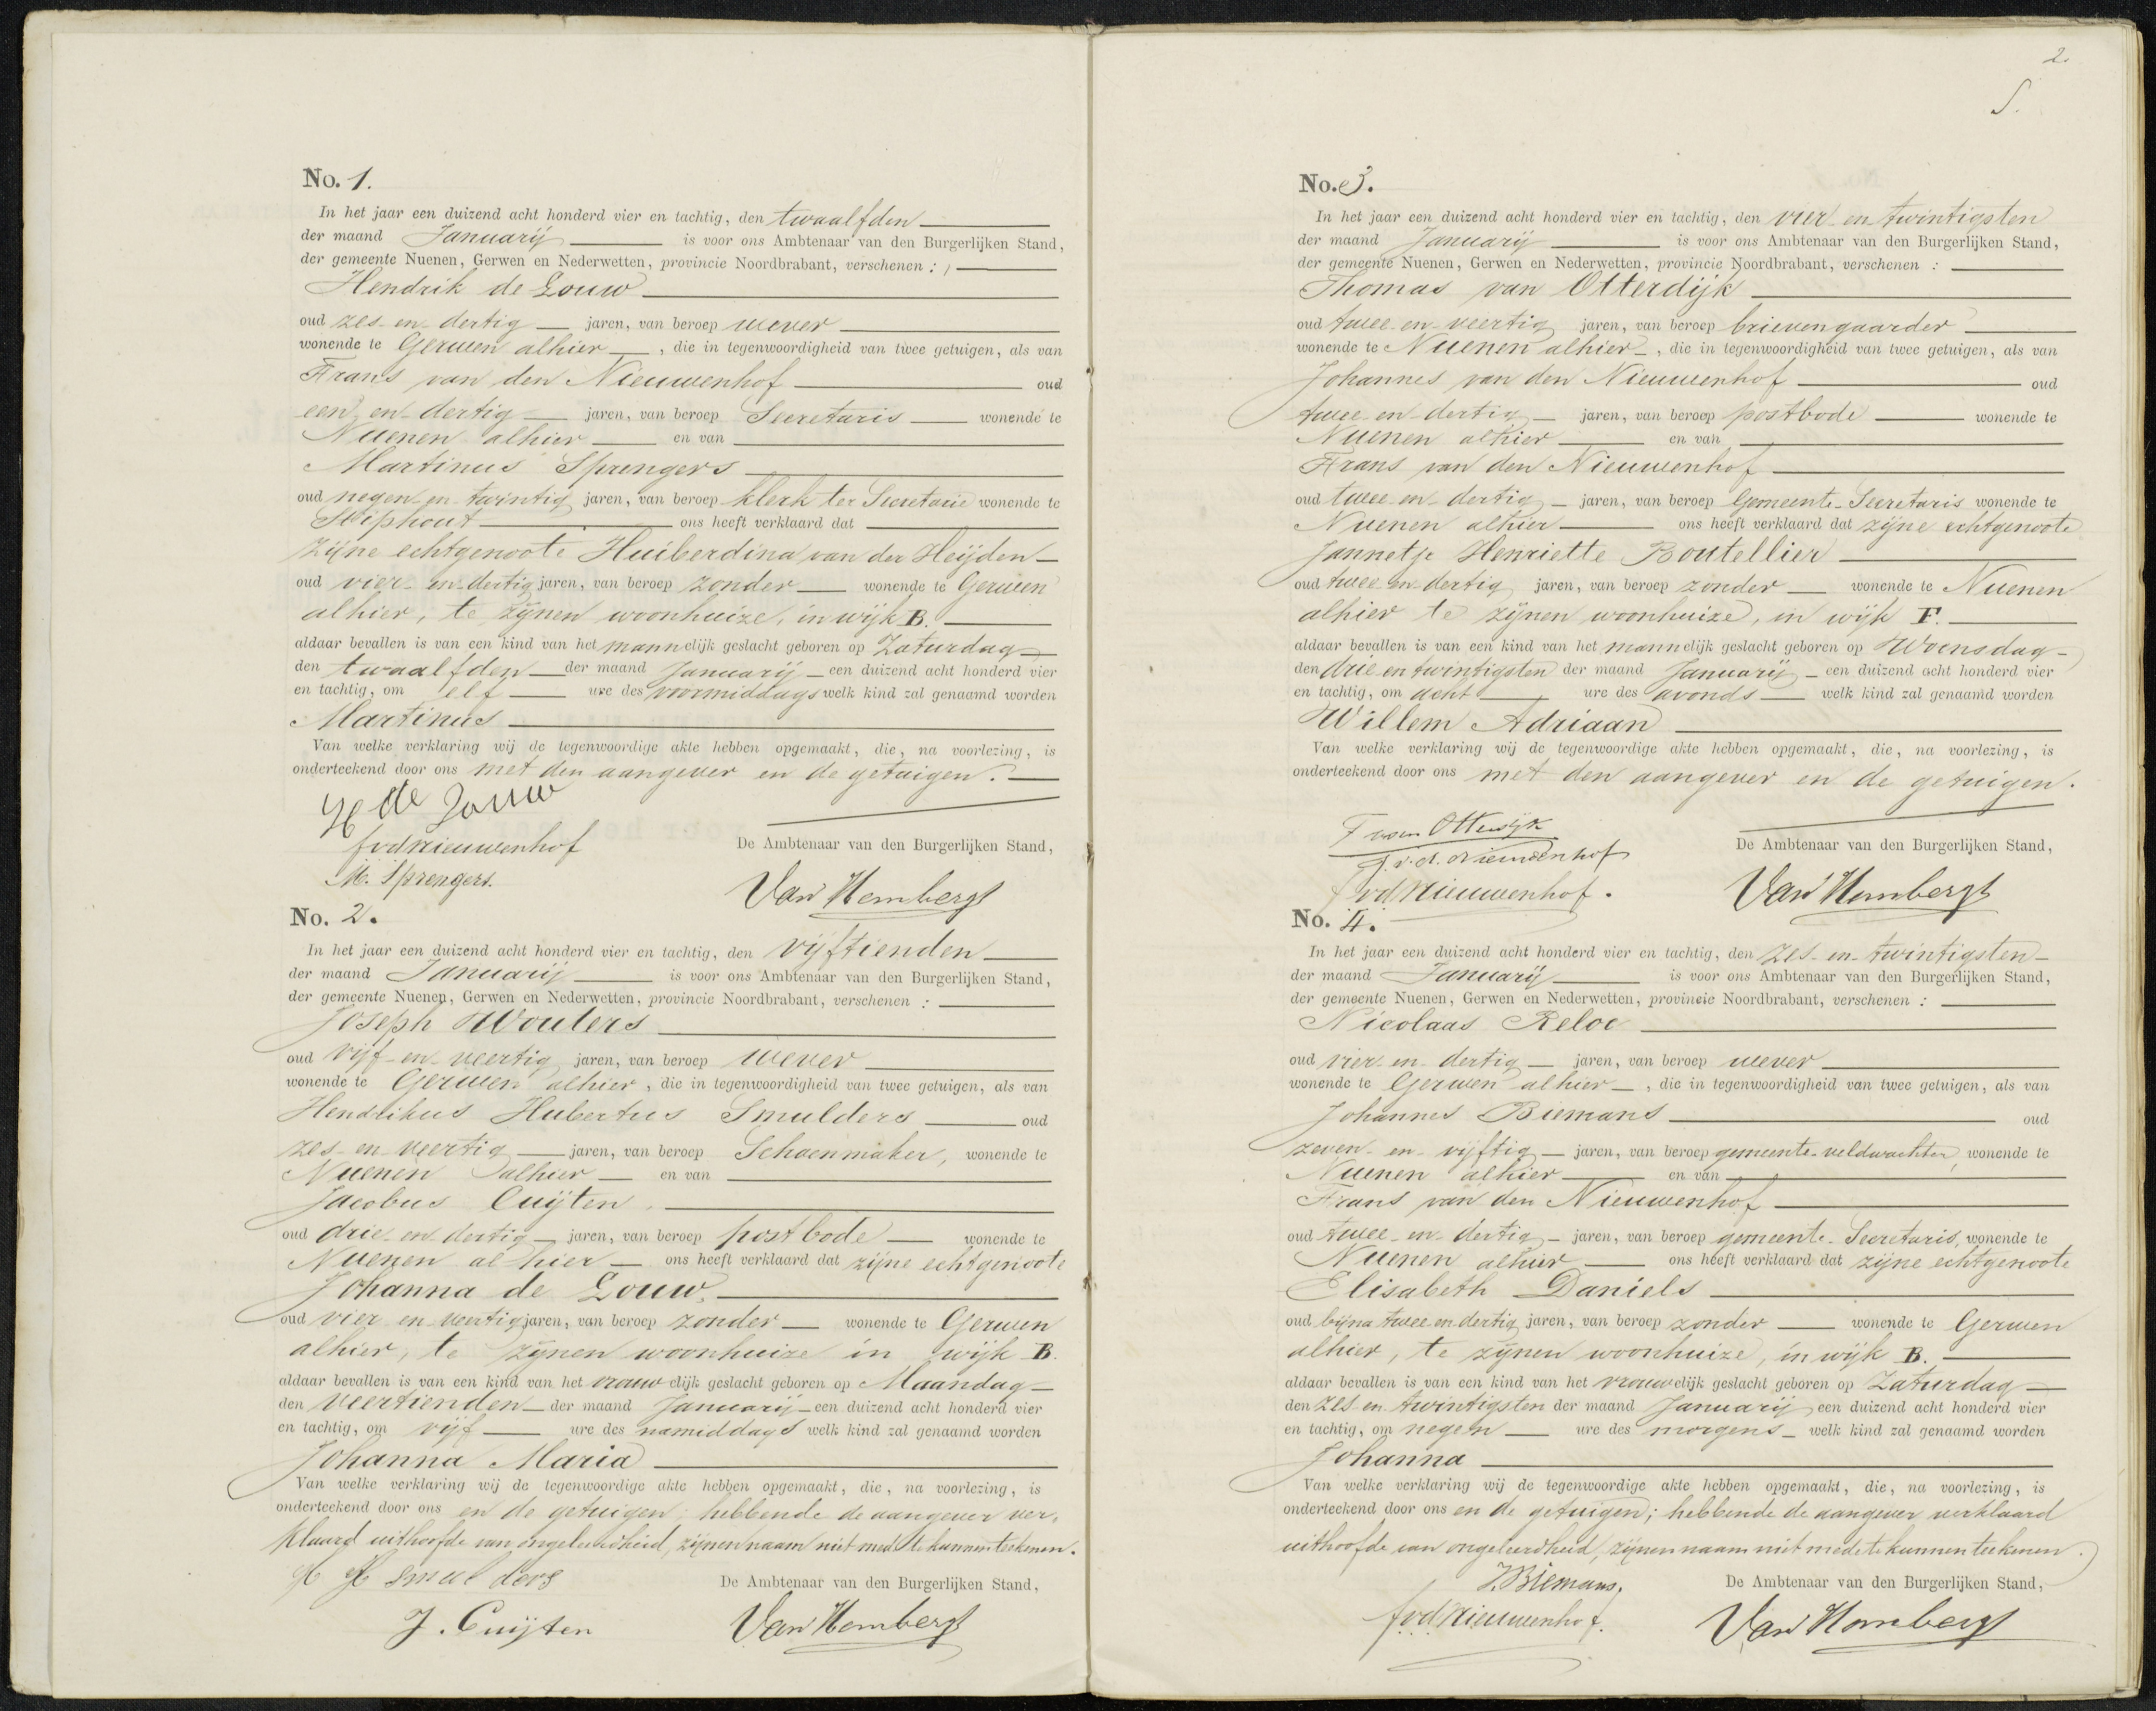 No. 1.
In het jaar een duizend acht honderd vier en tachtig, den twaalfden
der maand Januarij is voor ons Ambtenaar van den Burgerlijken Stand,
der gemeente Nuenen, Gerwen en Nederwetten, provincie Noordbrabant, verschenen :
Hendrik de Louw
oud zes en dertig jaren, van beroep wever
wonende te Gerwen alhier, die in tegenwoordigheid van twee getuigen, als van
Frans van den Nieuwenhof oud
een en dertig jaren, van beroep Secretaris wonende te
Nuenen alhier en van
Martinus Sprengers
oud negen en twintig jaren, van beroep klerk ter Secretarie wonende te
Stiphout ons heeft verklaard dat
zijne echtgenoote Huiberdina van der Heijden
oud vier en dertig jaren, van beroep zonder wonende te Gerwen
alhier, te zijnen woonhuize, in wijk B.
aldaar bevallen is van een kind van het mannelijk geslacht geboren op Zaturdag
den twaalfden der maand Januarij een duizend acht honderd vier
en tachtig, om elf ure des voormiddags welk kind zal genaamd worden
Martinus
Van welke verklaring wij de tegenwoordige akte hebben opgemaakt, die, na voorlezing, is
onderteekend door ons met den aangever en de getuigen.
H de Louw
fvdNieuwenhof
M. Sprengers.
De Ambtenaar van den Burgerlijken Stand,
Van Hombergh
No. 2.
In het jaar een duizend acht honderd vier en tachtig, den vijftienden
der maand Januarij is voor ons Ambtenaar van den Burgerlijken Stand,
der gemeente Nuenen, Gerwen en Nederwetten, provincie Noordbrabant, verschenen :
Joseph Wouters
oud vijf en veertig jaren, van beroep wever
wonende te Gerwen alhier, die in tegenwoordigheid van twee getuigen, als van
Hendrikus Hubertus Smulders oud
zes en veertig jaren, van beroep Schoenmaker, wonende te
Nuenen alhier en van
Jacobus Cuijten
oud drie en dertig jaren, van beroep postbode wonende te
Nuenen alhier ons heeft verklaard dat zijne echtgenoote
Johanna de Louw,
oud vier en veertig jaren, van beroep zonder wonende te Gerwen
alhier, te zijnen woonhuize in wijk B.
aldaar bevallen is van een kind van het vrouwelijk geslacht geboren op Maandag
den veertienden der maand Januarij een duizend acht honderd vier
en tachtig, om vijf ure des namiddags welk kind zal genaamd worden
Johanna Maria
Van welke verklaring wij de tegenwoordige akte hebben opgemaakt, die, na voorlezing, is
onderteekend door ons en de getuigen; hebbende de aangever ver,
klaard uithoofde van ongeleerdheid, zijnen naam niet mede te kunnen teekenen.
H H Smulders
J. Cuijten
De Ambtenaar van den Burgerlijken Stand,
Van Hombergh
2.
No. 3.
In het jaar een duizend acht honderd vier en tachtig, den vier en twintigsten
der maand Januarij is voor ons Ambtenaar van den Burgerlijken Stand,
der gemeente Nuenen, Gerwen en Nederwetten, provincie Noordbrabant, verschenen :
Thomas van Otterdijk
oud twee en veertig jaren, van beroep brievengaarder
wonende te Nuenen alhier, die in tegenwoordigheid van twee getuigen, als van
Johannes van den Nieuwenhof oud
twee en dertig jaren, van beroep postbode wonende te
Nuenen alhier en van
Frans van den Nieuwenhof
oud twee en dertig jaren, van beroep Gemeente-Secretaris wonende te
Nuenen alhier ons heeft verklaard dat zijne echtgenoote
Jannetje Henriette Boutellier
oud twee en dertig jaren, van beroep zonder wonende te Nuenen
alhier te zijnen woonhuize, in wijk F.
aldaar bevallen is van een kind van het mannelijk geslacht geboren op Woensdag
den drie en twintigsten der maand Januarij een duizend acht honderd vier
en tachtig, om acht ure des avonds welk kind zal genaamd worden
Willem Adriaan
Van welke verklaring wij de tegenwoordige akte hebben opgemaakt, die, na voorlezing, is
onderteekend door ons met den aangever en de getuigen.
T van Otterdijk
J. v. d. Nieuwenhof
fvdNieuwenhof.
De Ambtenaar van den Burgerlijken Stand,
Van Hombergh
No. 4.
In het jaar een duizend acht honderd vier en tachtig, den zes en twintigsten
der maand Januarij is voor ons Ambtenaar van den Burgerlijken Stand,
der gemeente Nuenen, Gerwen en Nederwetten, provincie Noordbrabant, verschenen :
Nicolaas Reloe
oud vier en dertig jaren, van beroep wever
wonende te Gerwen alhier, die in tegenwoordigheid van twee getuigen, als van
Johannes Biemans oud
zeven en vijftig jaren, van beroep gemeente-veldwachter, wonende te
Nuenen alhier en van
Frans van den Nieuwenhof
oud twee en dertig jaren, van beroep gemeente-Secretaris, wonende te
Nuenen alhier ons heeft verklaard dat zijne echtgenoote
Elisabeth Daniels
oud bijna twee en dertig jaren, van beroep zonder wonende te Gerwen
alhier, te zijnen woonhuize, in wijk B.
aldaar bevallen is van een kind van het vrouwelijk geslacht geboren op Zaturdag
den zes en twintigsten der maand Januarij een duizend acht honderd vier
en tachtig, om negen ure des morgens welk kind zal genaamd worden
Johanna
Van welke verklaring wij de tegenwoordige akte hebben opgemaakt, die, na voorlezing, is
onderteekend door ons en de getuigen; hebbende de aangever verklaard
uithoofde van ongeleerdheid, zijnen naam niet mede te kunnen teekenen.
J. Biemans,
fvdNieuwenhof.
De Ambtenaar van den Burgerlijken Stand,
Van Hombergh